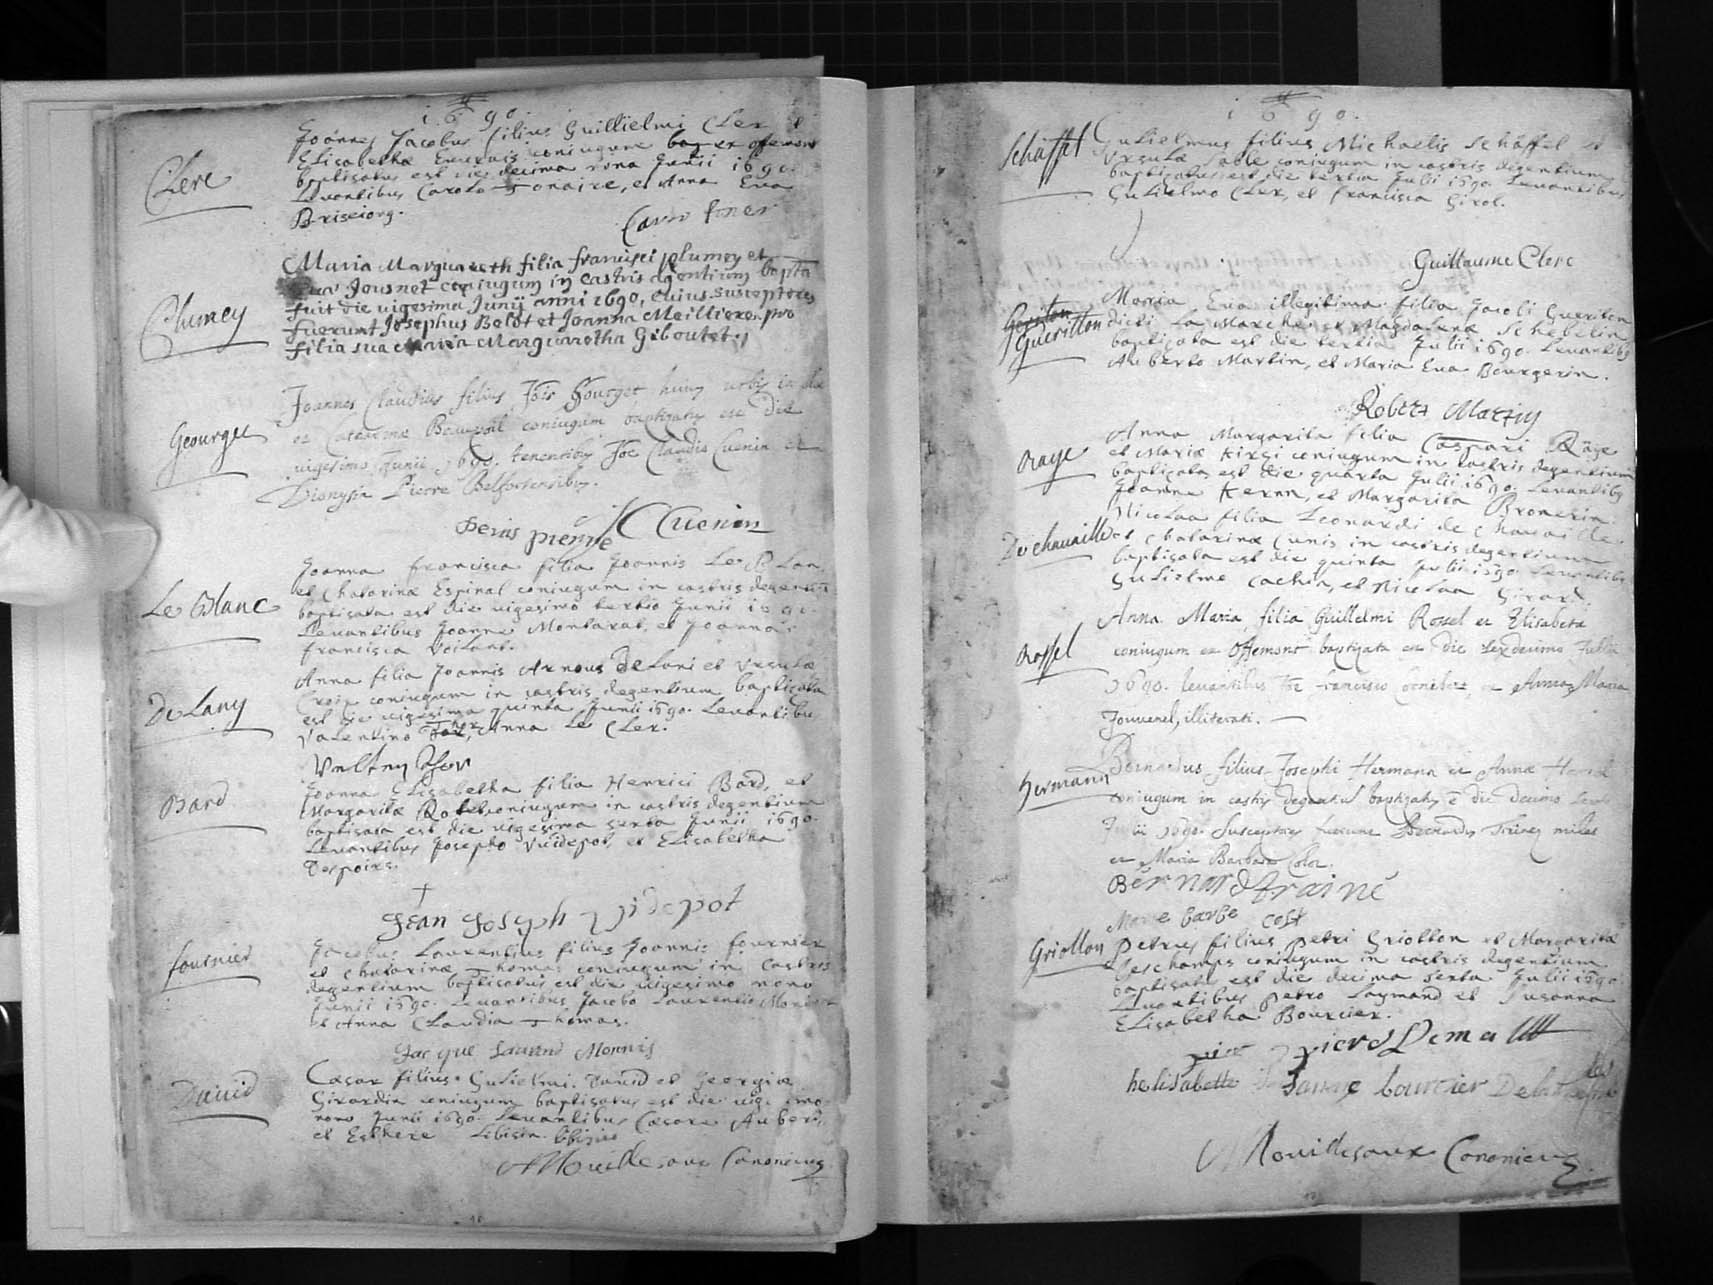 1690.
Clerc
Joannes Jacobus filius Guillielmi Cler et
Elisabetha coniugum ex offemont
baptisatus est die decima nona Junii 1690.
Levantibus Carolo Tonaire, et Anna Eva
Briseiorg.
Plumey
Maria Margareth filia francisci plumey et
Jousnet coniugum in castris degentium bapta
fuit die vigesima Junij anni 1690, cuius susceptores
fuerunt Josephus Belot et Joanna Meilliere pro
filia sua Maria Margarretha Giboutet.
Georurgee
Joannes Claudius filius Jois Gourget huius urbis
et Catarinæ coniugum baptizatus est die
vigesimo Junii 1690. tenentibus Joe Claudio Cuenin et
Dionysio Pierre Belfortensibus.
Denis pierre JC Cuenin
Le Blanc
Joanna francisca filia Joannis Le Blan,
et Chatarinæ Espinal coniugum in castris degentium
baptisata est die vigesimo tertio Junii 1690.
Levantibus Joanne Montarat, et Joanna
francisca Voilant.
De Lany
Anna filia Joannis Arnous De Lani et Ursulæ
Croix coniugum in castris degentium baptisata
est die vigesima quinta Junii 1690. Levantibus
Valentino Thor, Anna Le Cler.
Valtin Thor
Bard
Joanna Elisabetha filia Henrici Bard, et
Margaritæ coniugum in castris degentium
baptisata est die vigesima sexta Junii 1690.
Levantibus Josepho Vuidepot, et Elisabetha
Despoirs.
Jean Joseph Vuidepot
fournier
Jacobus Laurentius filius Joannis fournier
et Chatarinæ Thomas coniugum in castris
degentium baptisatus est die vigesimo nono
Junii 1690. Levantibus Jacobo Laurentio
et Anna Claudia Thomas.
Jacque Laurend Monnis
David
Cæsar filius Gulielmi David et Georgiæ
Girardin coniugum baptisatus est die
nono Junii 1690. Levantibus Cæsare Auberi,
et Esthere Libisin.
Mouillesaux Canonicus
1690.
Schäffel
Gulielmus filius Michaelis Schäffel et
Ursulæ coniugum in castris degentium
baptisatus est die tertia Julii 1690. Levantibus
Gulielmo Cler, et francisca Girol.
Guillaume Clerc
Gueritton
Maria Eva illegitima filia Jacobi Gueriton
dicti La Marche et Magdalenæ Schebelin
baptisata est die tertia Julii 1690. Levantibus
Martin, et Maria Eva Bourgerin.
Robert Martin
Raye
Anna Margarita filia Caspari Räge
et Mariæ Kirsi coniugum in castris degentium
baptisata est die quarta Julii 1690. Levantibus
Joanne Kernn, et Margarita Bromerin.
De chauaille
Nicolaa filia Leonardi de Chauaille
et Chatarinæ Cunis in castris degentium
baptisata est die quinta Julii 1690 Levantibus
Gulielmo Cachin, et Nicolaa Girard.
Rossel
Anna Maria filia Guillelmi Rossel et Elisabeta
coniugum ex Offemont baptizata est die sexdecimo Julii
1690. levantibus Joe francisco et Anna Maria
Jouuenel, illiterati.
Hermann
Bernardus filius Josephi Hermann et Annæ
coniugum in castris degentium baptizatus e die decimo
Julii 1690. Susceptores fuerunt Bernardus Trinez miles
et Maria Barbara Colot.
Bernard trainé
Marie barbe cost
Griollon
Petrus filius Petri Griollon et Margaritæ
Deschamps coniugum in castris degentium
baptisatus est die decima sexta Julii 1690
Levantibus Petro Laymand et Susanna
Elisabetha Bourcier.
helisabette Sanne bourcier
Mouillesaux Canonicus